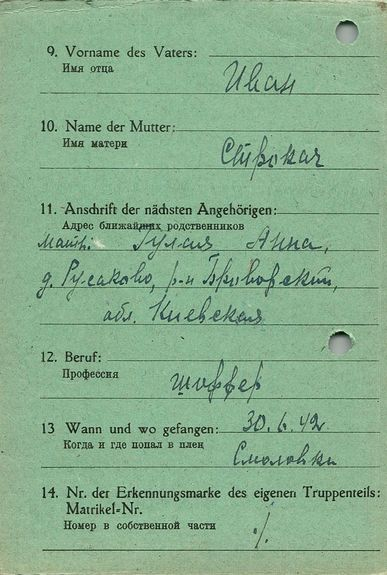 9. Vorname des Vaters:
Имя отца
Иван
10. Name der Mutter:
Имя матери
Сирокач
11. Anschrift der nächsten Angehörigen:
Адрес ближайших родственников
Мать: Гулая Анна,
д. Русаково, р-н Броворский,
обл. Киевская
12. Beruf:
Профессия
шоффер
13 Wann und wo gefangen: 30.6.42
Когда и где попал в плен
Смоловки
14. Nr. der Erkennungsmarke des eigenen Truppenteils:
Matrikel-Nr.
Номер в собственной части
·/.